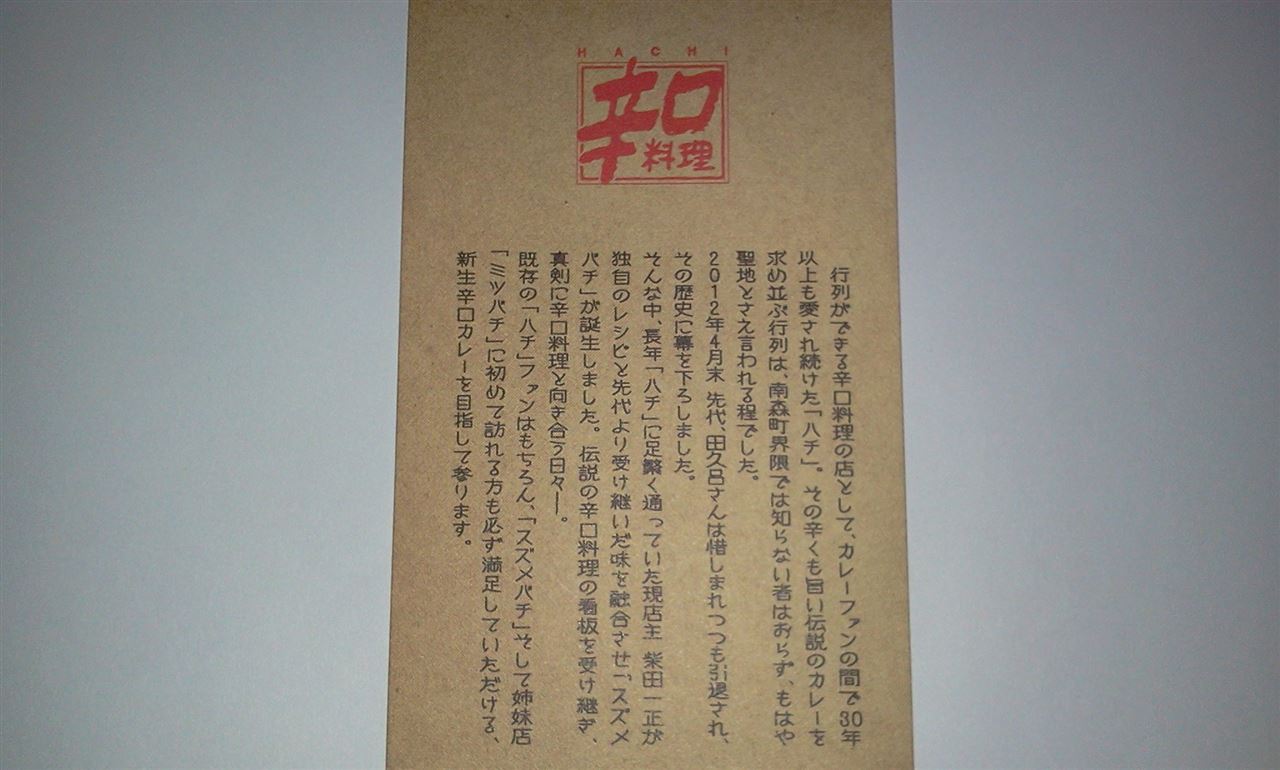 HACHI
辛口
料理
行列ができる辛口料理の店として、カレーファンの間で30年
以上も愛され続けた「ハチ」。その辛くも旨い伝説のカレーを
求め並ぶ行列は、南森町界隈では知らない者はおらず、もはや
聖地とさえ言われる程でした。
2012年4月末 先代、田久呂さんは惜しまれつつも引退され、
その歴史に幕を下ろしました。
そんな中、長年「ハチ」に足繁く通っていた現店主 柴田一正が
独自のレシピと先代より受け継いだ味を融合させ「スズメ
バチ」が誕生しました。伝説の辛口料理の看板を受け継ぎ、
真剣に辛口料理と向き合う日々―。
既存の「ハチ」ファンはもちろん、「スズメバチ」そして姉妹店
「ミツバチ」に初めて訪れる方も必ず満足していただける、
新生辛口カレーを目指して参ります。